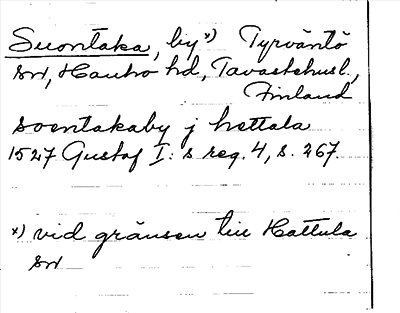 Suontaka, by x) Tyrväntö
sn, Hauho hd, Tavastehusl.,
Finland
soentakaby j hettala
1527 Gustaf I:s reg. 4, s. 267.
x) vid gränsen till Hattula
sn